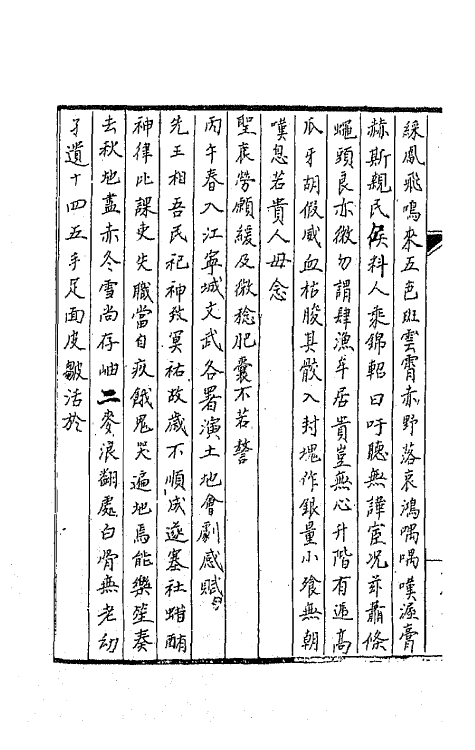 綵鳳飛鳴來五色斑雲霄赤野落哀鴻喁喁嘆源膏
赫斯親民候料人乘錦軺曰吁聽無諱宦况茲蕭條
蠅頭良亦微勿謂肆漁牟居貴豈無心升階有遞高
爪牙胡假威血枯朘其骰入封塊作銀量小飱無朝
嘆息若貴人毋念
聖衷勞願緩及徵稔肥囊不若瞀
丙午春入江寧城文武各署演土地會劇感賦
先王相吾民祀神致冥祐故歲不順成遂塞社蜡酺
神律比課吏失職當自疚餓鬼哭遍地焉能樂笙奏
去秋地盡赤冬雪尚存岫二麥浪翻處白骨無老幼
孑遺十四五手足面皮皺活於